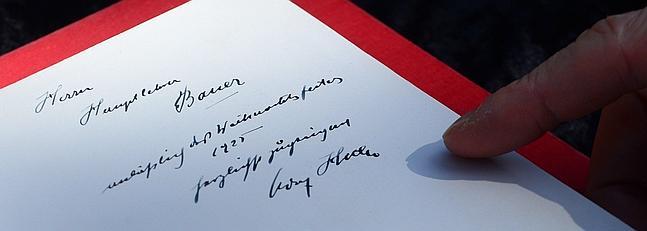 Herrn
Hauptlehrer Bauer
anläßlich des Weihnachtsfestes
1925
herzlichst zugeeignet
Adolf Hitler